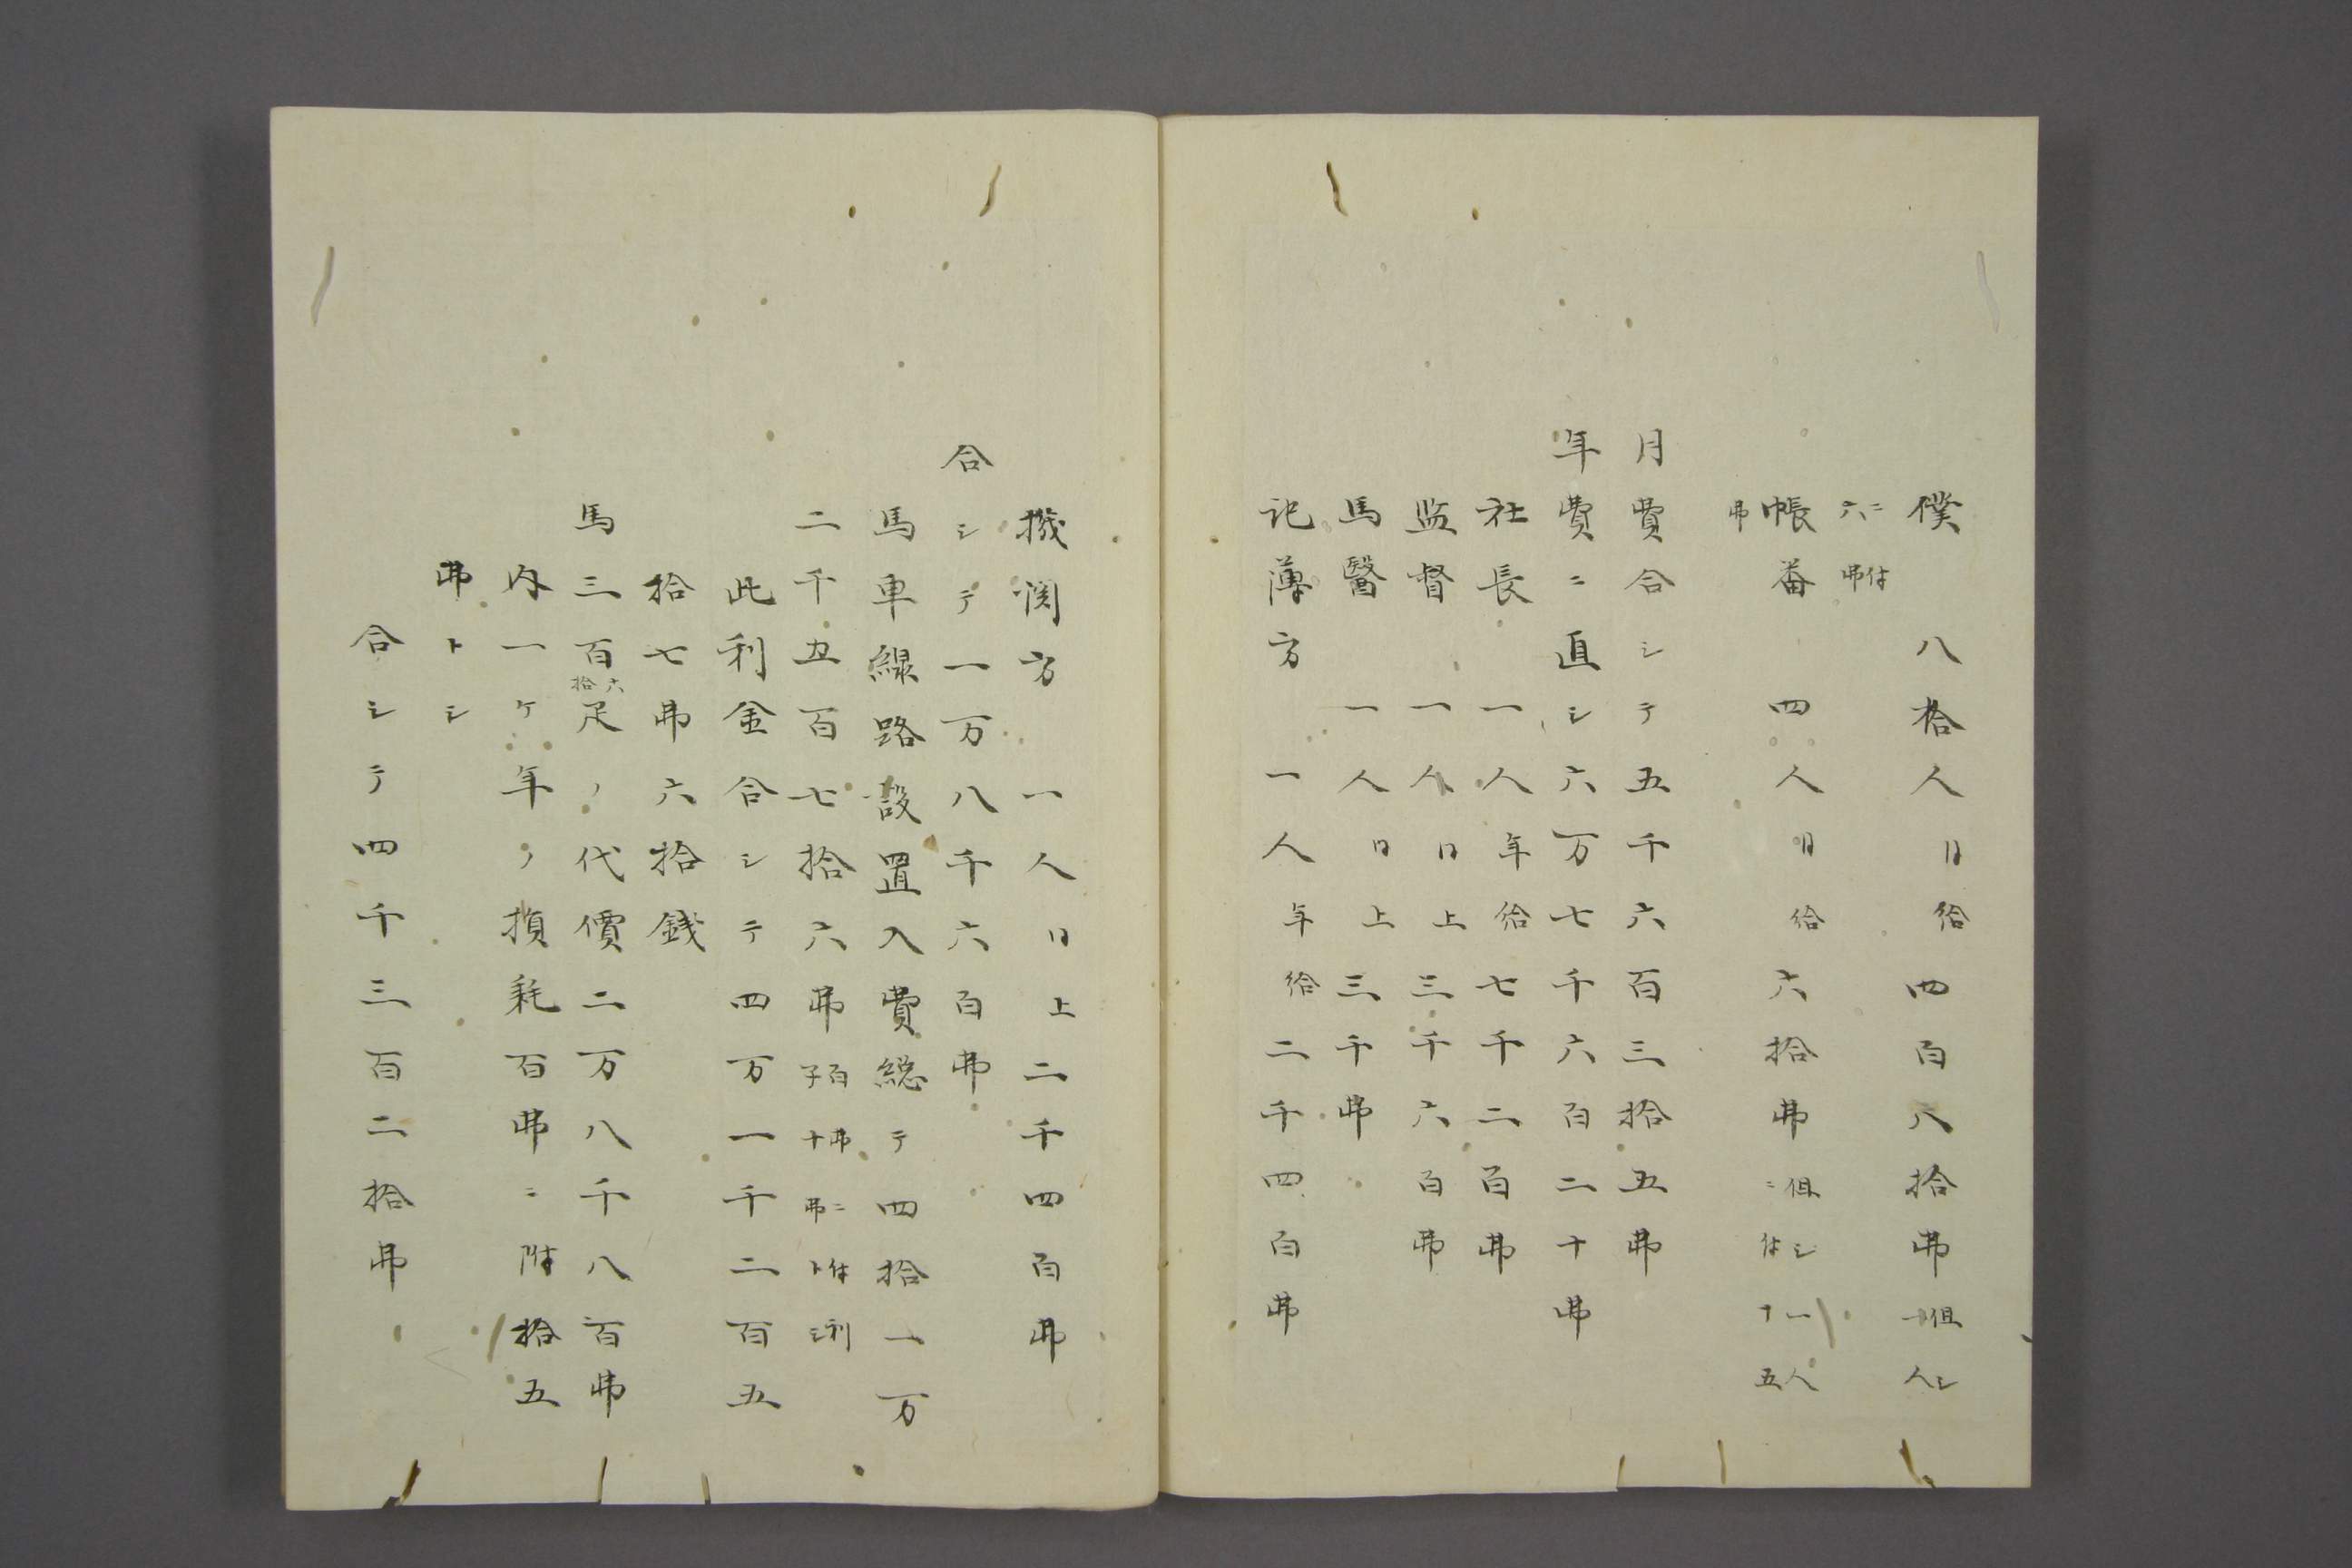 僕 八拾人月給四百八拾弗但シ一人
ニ付六弗
帳番 四人月給六拾弗但シ一人ニ付十五
弗
月費合シテ五千六百三拾五弗
年費ニ直シ六万七千六百二十弗
社長 一人年給七千二百弗
监督 一人同上三千六百弗
馬醫 一人同上三千弗
記薄方 一人年給二千四百弗
機関方 一人同上二千四百弗
合シテ一万八千六百弗
馬車線路設置入費総テ四拾一万
二千五百七拾六弗百弗ニ付利子十弗トシ
此利金合シテ四万一千二百五
拾七弗六拾銭
馬三百六拾疋ノ代價二万八千八百弗
内一ケ年ノ損耗百弗ニ附拾五
弗トシ
合シテ四千三百二拾弗